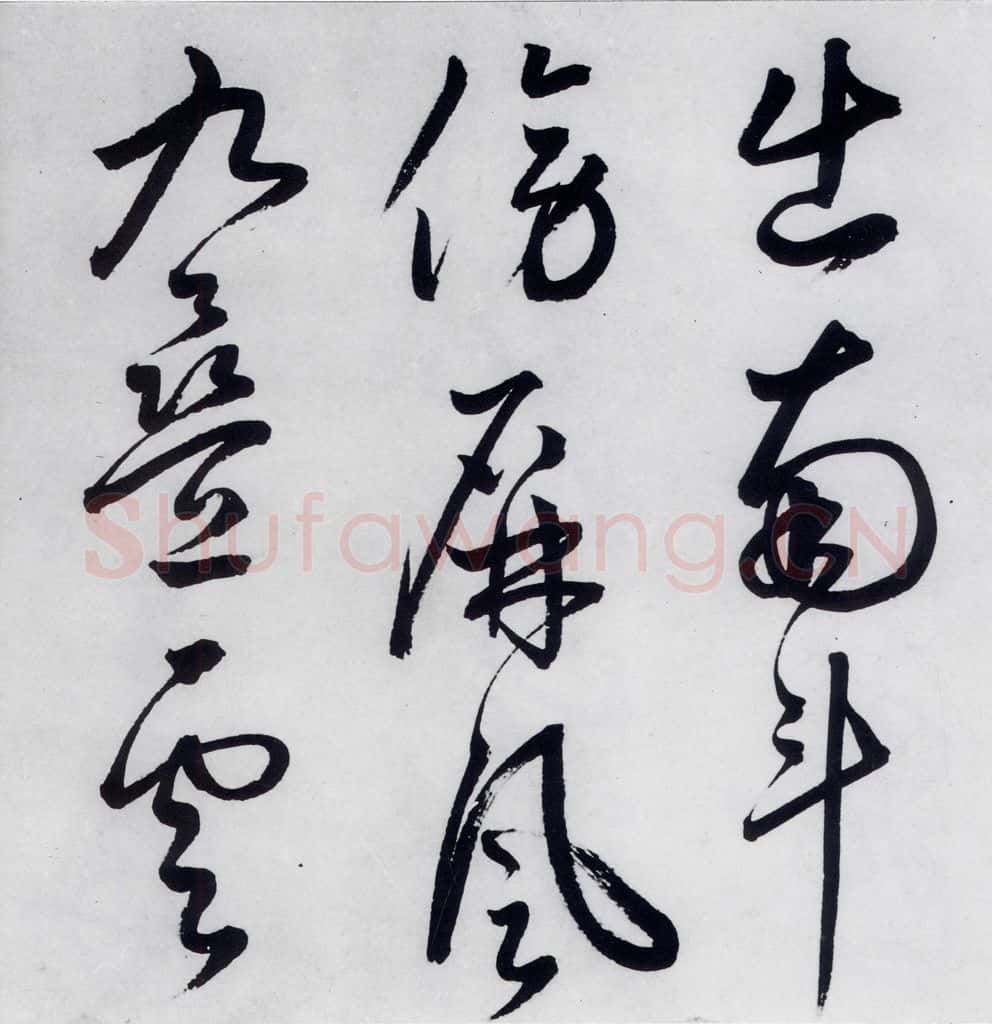 出南斗
傍屏風
九疊雲
Shufawang.CN